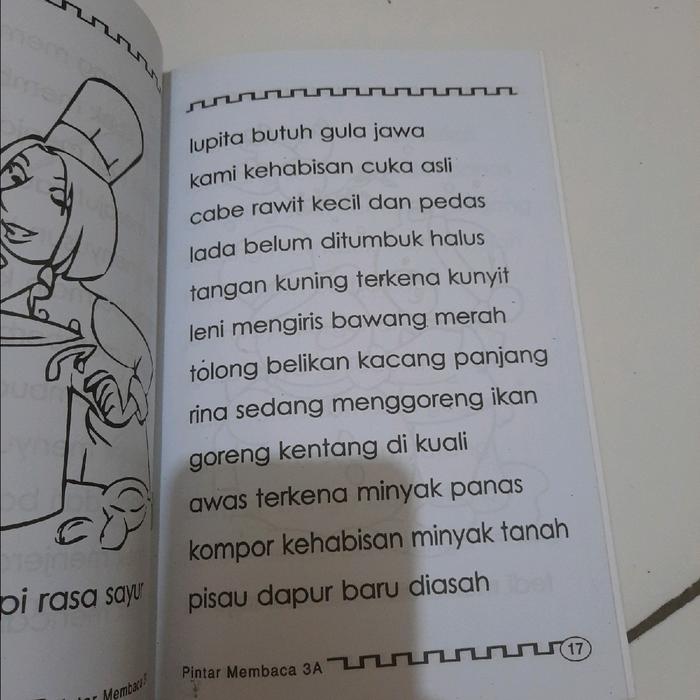 lupita butuh gula jawa
kami kehabisan cuka asli
cabe rawit kecil dan pedas
lada belum ditumbuk halus
tangan kuning terkena kunyit
leni mengiris bawang merah
tolong belikan kacang panjang
rina sedang menggoreng ikan
goreng kentang di kuali
awas terkena minyak panas
kompor kehabisan minyak tanah
pisau dapur baru diasah
Pintar Membaca 3A 17
pi rasa sayur
Membaca